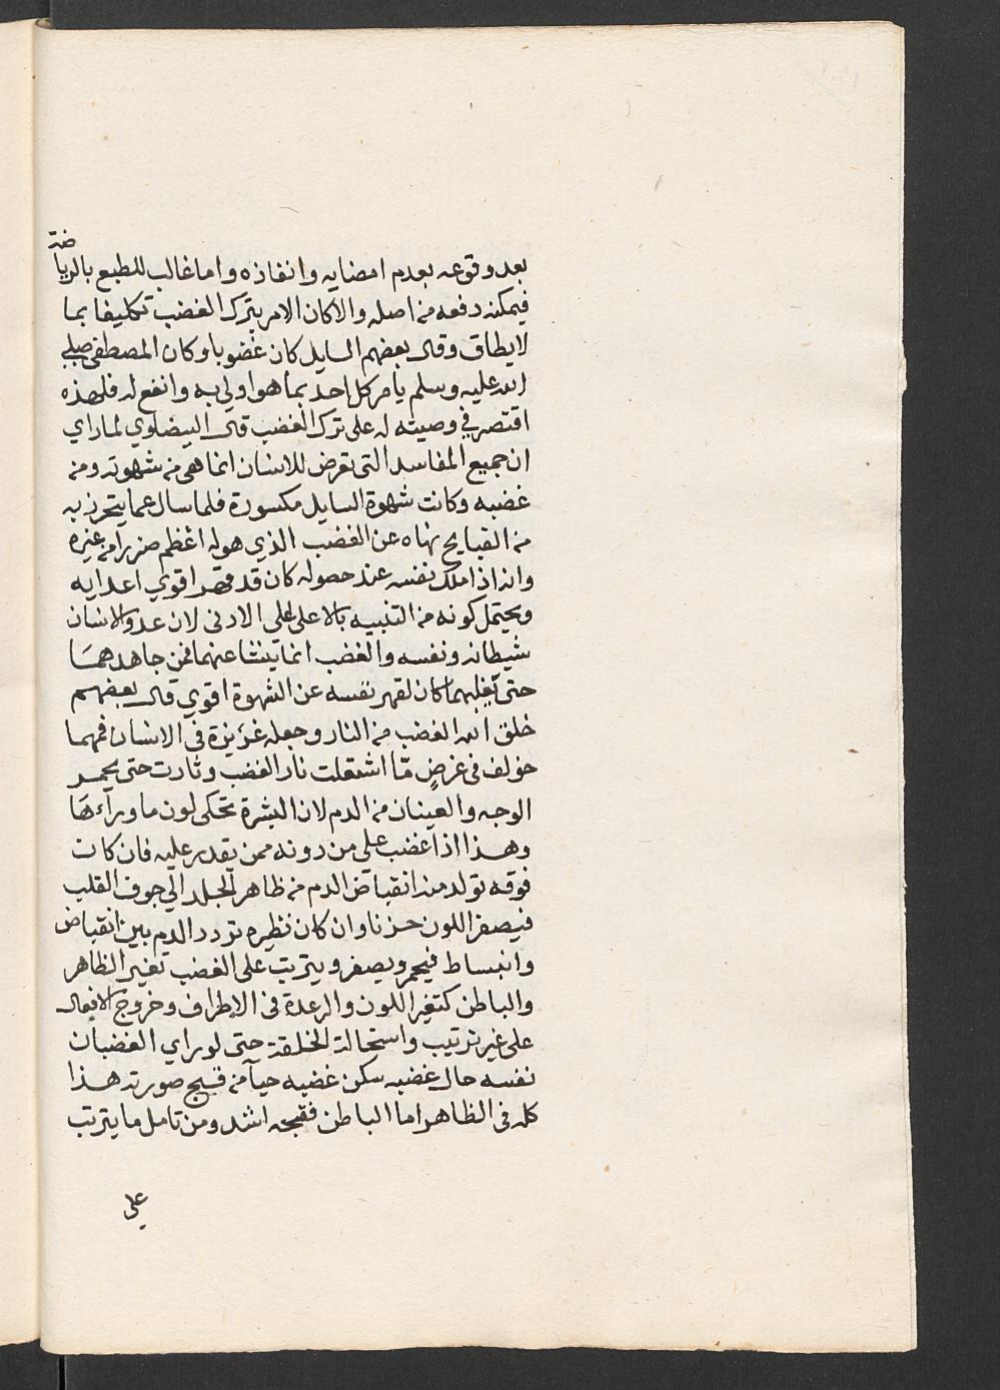 بعد وقوعه بعدم امضايه وانفاذه واما غالب للطبع بالرياضة
فيمكنه دفعه من اصله والا كان الامر بترك الغضب تكليفا بما
لا يطاق وقال بعضهم السايل كان غضوبا وكان المصطفى صلي
الله عليه وسلم يامر كل احد بما هو اولي به وانفع له فلهذه
اقتصر في وصيته له على ترك الغضب قال البيضاوي لما راي
ان جميع المفاسد التى تعرض للانسان انما هى من شهوته ومن
غضبه وكانت شهوة السايل مكسورة فلما سال عما يتحرز به
من القبايح نهاه عن الغضب الذي هو له اعظم ضررا من غيره
وانه اذا ملك نفسه عند حصوله كان قد قهر اقوي اعدايه
ويحتمل كونه من التنبيه بالاعلى على الادنى لان عدو الانسان
شيطانه ونفسه والغضب انما ينشا عنهما فمن جاهدهما
حتى يغلبهما كان لقهر نفسه عن الشهوة اقوي قال بعضهم
خلق الله الغضب من النار وجعله غريزة فى الانسان فمهما
خولف فى غرضٍ مّا اشتعلت نار الغضب وثارت حتى يحمر
الوجه والعينان من الدم لان البشرة تحكى لون ما وراءها
وهذا اذا غضب على من دونه ممن يقدر عليه فان كانت
فوقه تولد منه انقباض الدم من ظاهر الجلد الي جوف القلب
فيصفر اللون حزنا وان كان نظيره تردد الدم بين انقباض
وانبساط فيحمر ويصفر ويترتب على الغضب تغير الظاهر
والباطن كتغير اللون والرعدة فى الاطراف وخروج الافعال
على غير ترتيب واستحالة الخلقة حتى لو راي الغضبان
نفسه حال غضبه سكن غضبه حيآ من قبيح صورته هذا
كله فى الظاهر اما الباطن فقبحه اشد ومن تامل ما يترتب
على